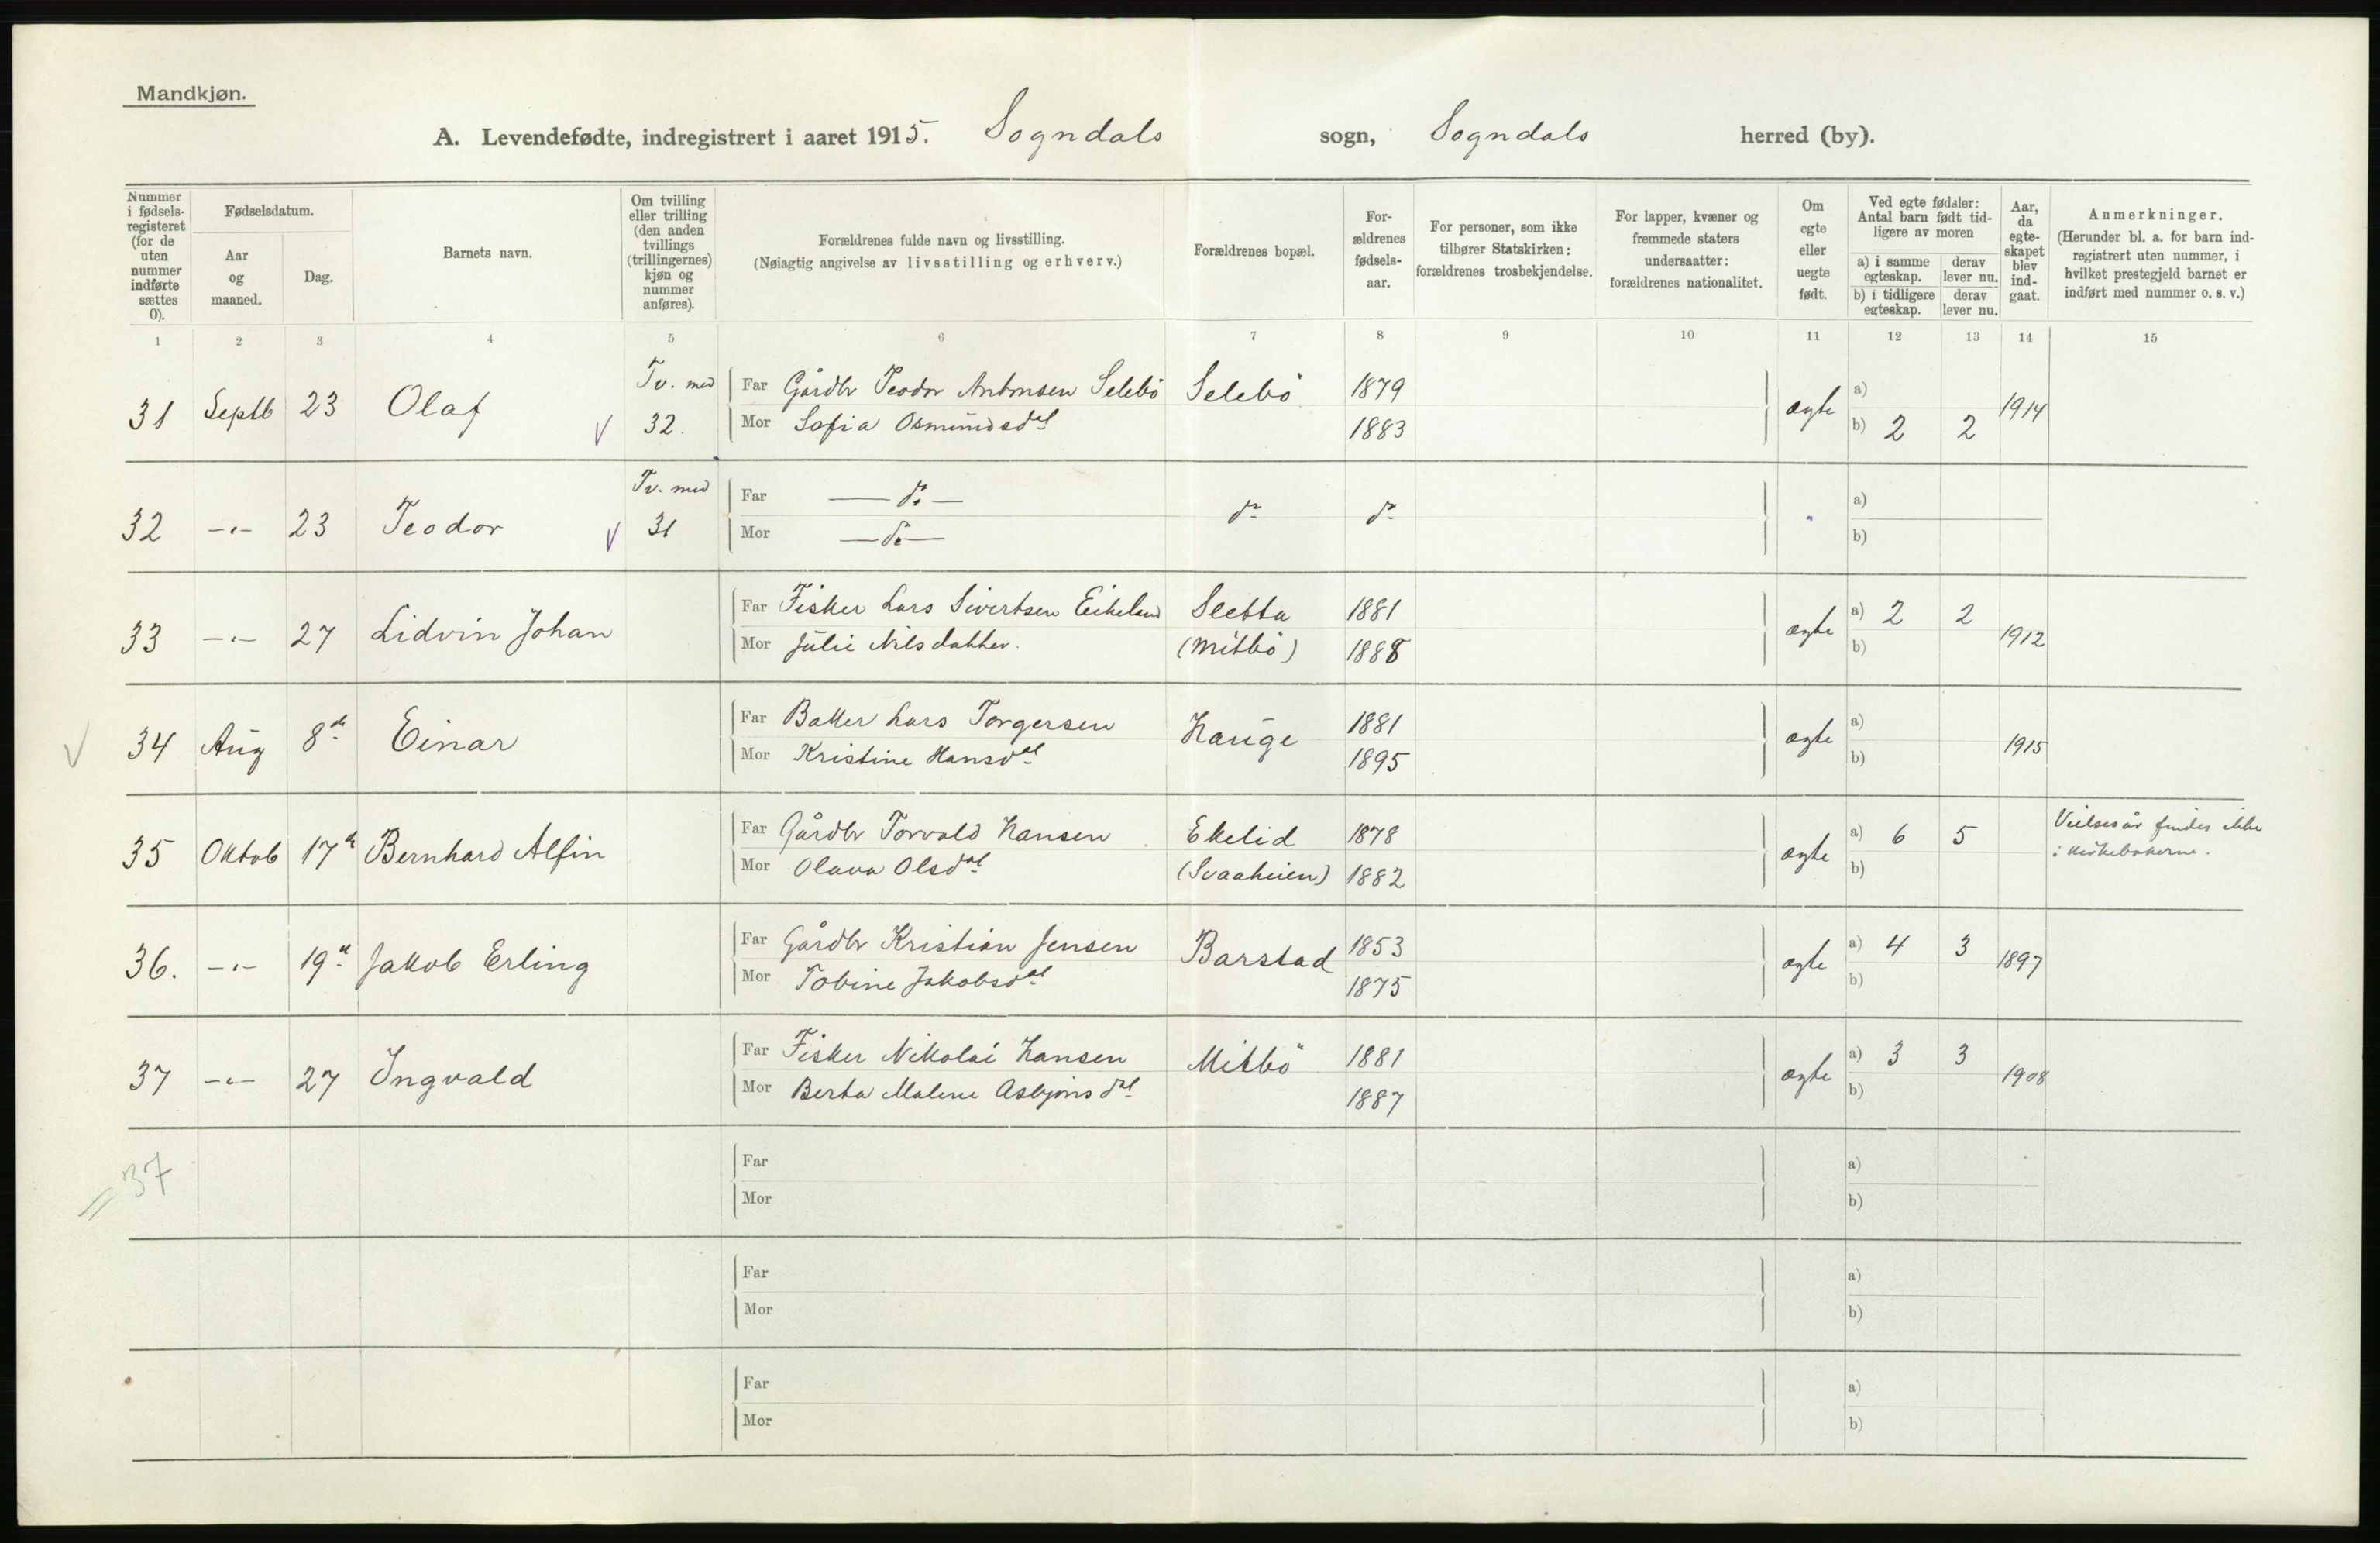 Mandkjøn.
A. Levendefødte, indregistrert i aaret 1915. Sogndals sogn, Sogndals herred (by).
Nummer i fødsels-registeret (for de uten nummer indførte sættes 0).
Fødselsdatum.
Aar og maaned.
Dag.
Barnets navn.
Om tvilling eller trilling (den anden tvillings (trillingernes) kjøn og nummer anføres).
Forældrenes fulde navn og livsstilling.
(Nøiagtig angivelse av livsstilling og erhverv.)
Forældrenes bopæl.
For-ældrenes fødsels-aar.
For personer, som ikke tilhører Statskirken: forældrenes trosbekjendelse.
For lapper, kvæner og fremmede staters undersaatter: forældrenes nationalitet.
Om egte eller uegte født.
Ved egte fødsler: Antal barn født tid-ligere av moren
a) i samme egteskap. derav lever nu.
b) i tidligere egteskap. derav lever nu.
Aar, da egte-skapet blev ind-gaat.
Anmerkninger.
(Herunder bl. a. for barn ind-registrert uten nummer, i hvilket prestegjeld barnet er indført med nummer o. s. v.)
1 2 3 4 5 6 7 8 9 10 11 12 13 14 15
31 Septb 23 Olaf V Tv. med 32. Far Gårdbr Teodor Antonsen Selebö Selebö 1879 ægte a) 1914
Mor Sofia Osmundsdat 1883 b) 2 2
32 -"- 23 Teodor V Tv. med 31 Far — do — do do " a)
Mor — do — b)
33 -"- 27 Lidvin Johan Far Fisker Lars Sivertsen Eikeland Sletta 1881 ægte a) 2 2 1912
Mor Julie Nilsdatter. (Mitbö) 1888 b)
V 34 Aug 8de Einar Far Baker Lars Torgersen Hauge 1881 ægte a) 1915
Mor Kristine Hansdat 1895 b)
35 Oktob 17de Bernhard Alfin Far Gårdbr Torvald Hansen Ekelid 1878 ægte a) 6 5 Vielsesår findes ikke
Mor Olava Olsdat (Svaaheien) 1882 b) i kirkebøkerne.
36. -"- 19de Jakob Erling Far Gårdbr Kristian Jensen Barstad 1853 ægte a) 4 3 1897
Mor Tobine Jakobsdat 1875 b)
37 -"- 27 Ingvald Far Fisker Nikolai Hansen Mitbö 1881 ægte a) 3 3 1908
Mor Berta Malene Asbjönsdat 1887 b)
= 37
Far a)
Mor b)
Far a)
Mor b)
Far a)
Mor b)